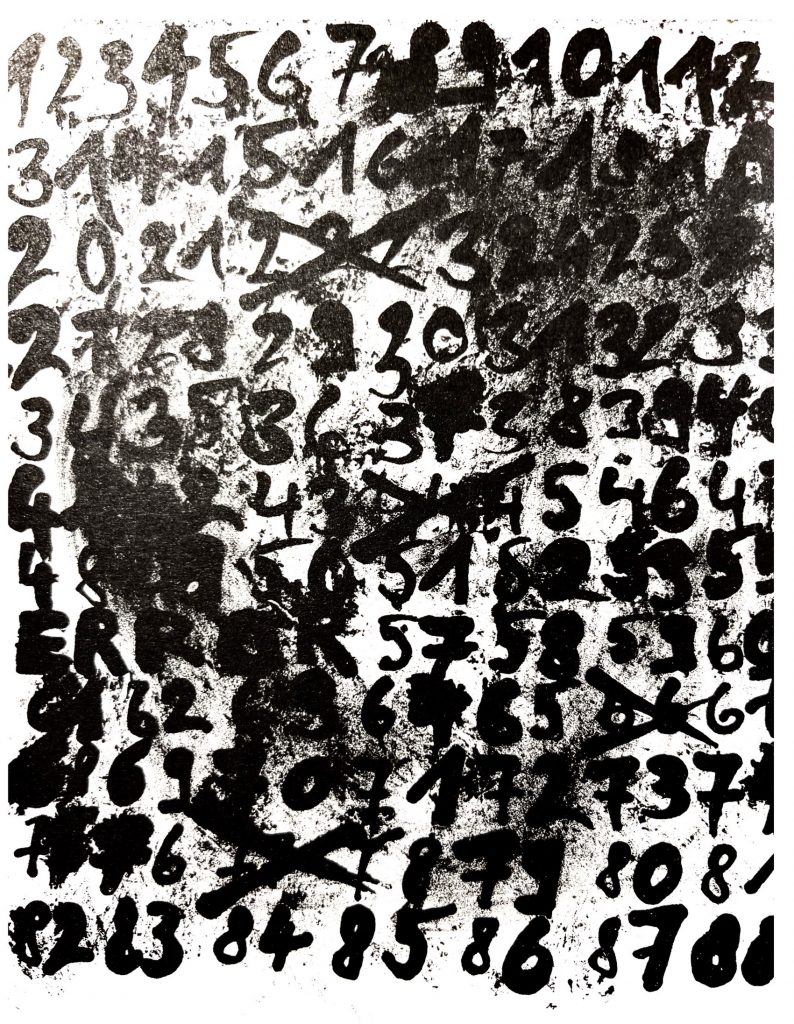 1 2 3 4 5 6 7 8 9 10 11 2
3 14 15 16 17 18 1
20 21 3 24 25
27 28 29 30 31 32 33
34 35 36 37 38 39 4
4 2 43 45 46 4
48 50 51 52 53 55
ERROR 57 58 59 60
61 62 63 64 65 66 6
68 69 70 71 72 73 74
7 76 8 79 80 81
82 83 84 85 86 87 88